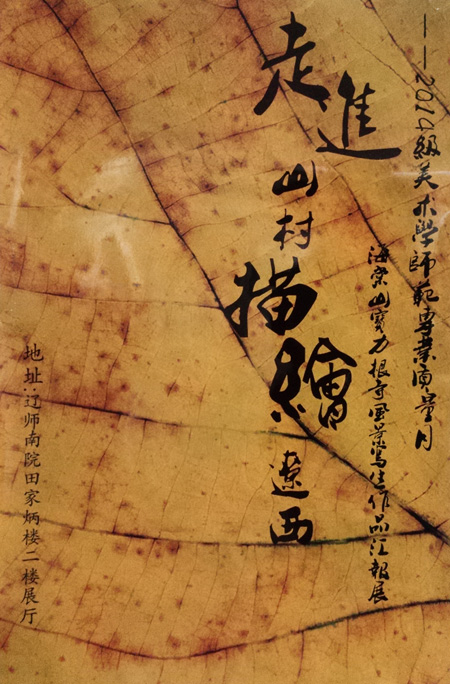 ——2014級美术學師範專業质量月
海棠山寶力根寺風景寫生作品汇報展
走進
山村
描繪
遼西
地址:辽师南院田家炳楼二楼展厅